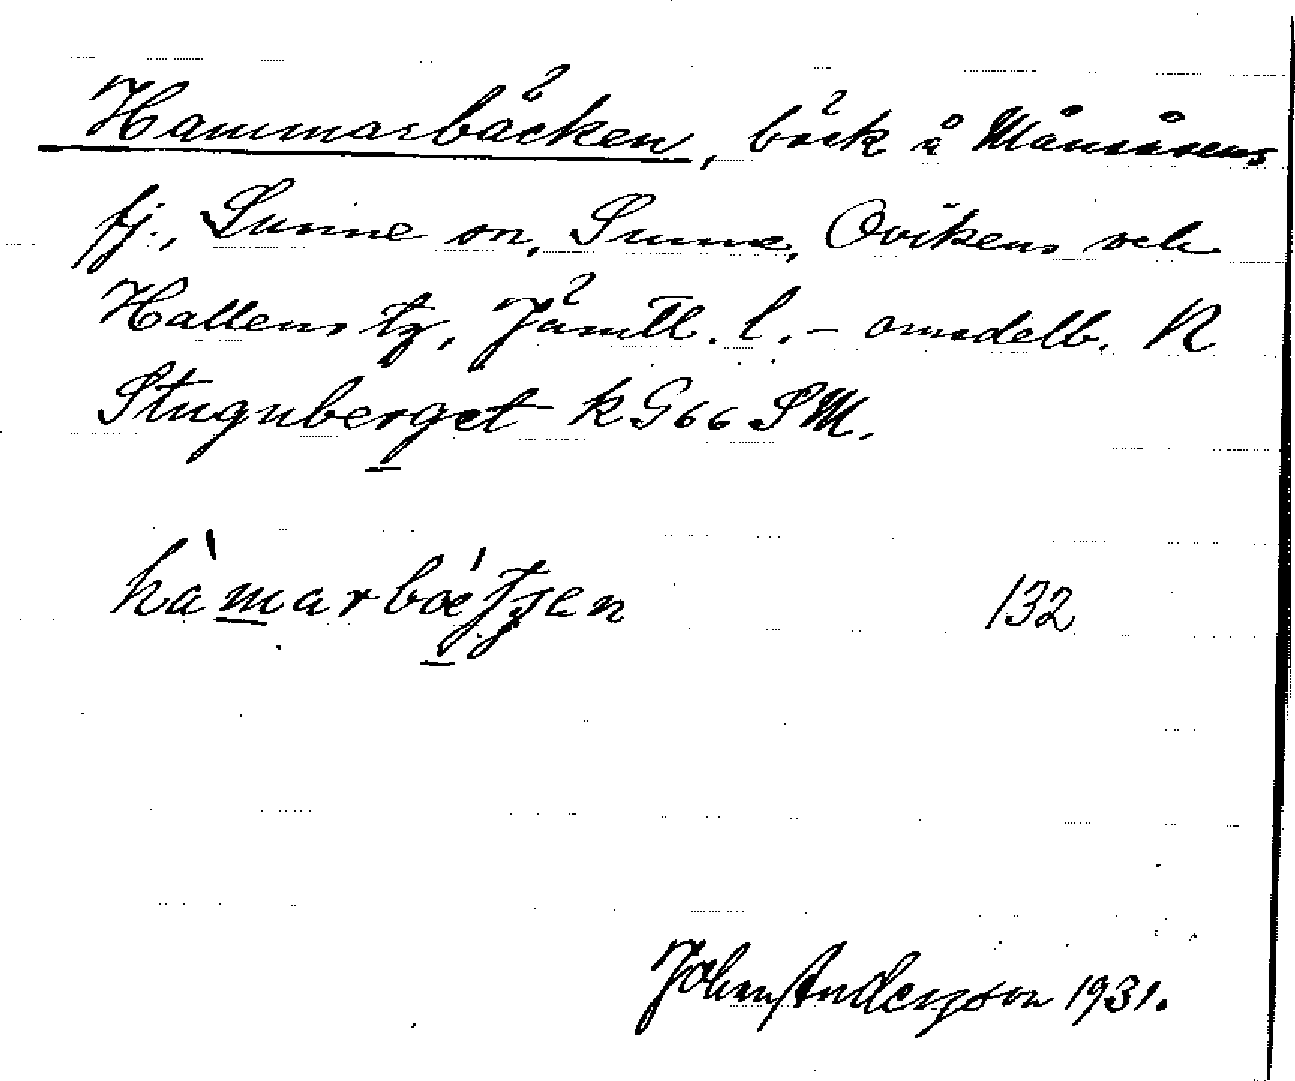 Hammarbäcken, bäck å Månsåsens
fj., Sunne sn, Sunne, Ovikens och
Hallens tg, Jämtl. l. - omedelb. N
Stuguberget k G66 SM.
hàmarbǽʃʃen 132
John Anderzson 1931.